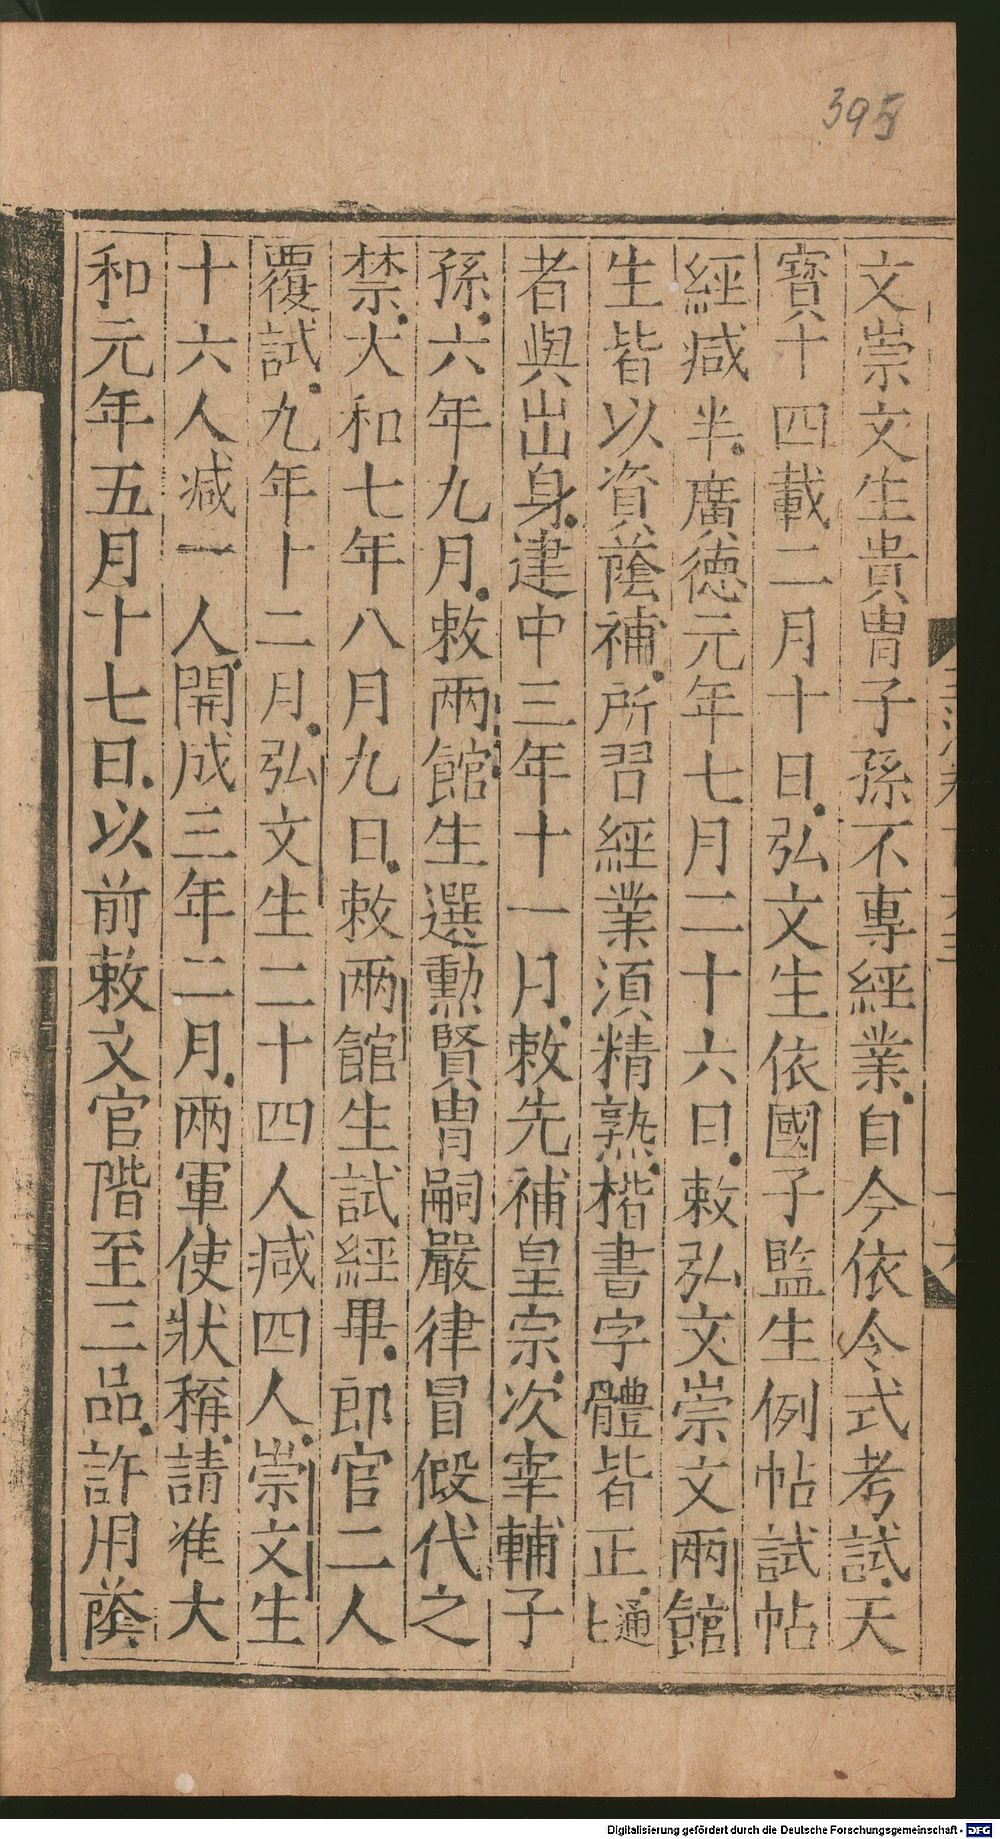 395
文崇文生貴胄子孫不專經業.自今依令式考試.天
寳十四載二月十日.弘文生依國子監生例帖試帖
經减半.廣徳元年七月二十六日.敕弘文崇文兩館
生皆以資蔭補.所習經業須精熟.楷書字體皆正.通七
者與出身.建中三年十一月.敕先補皇宗.次宰輔子
孫.六年九月.敕兩館生選勲賢胄嗣嚴律冒假代之
禁.大和七年八月九日.敕兩館生試經畢.郎官二人
覆試.九年十二月.弘文生二十四人减四人.崇文生
十六人减一人.開成三年二月.兩軍使狀稱.請准大
和元年五月十七日.以前敕文官階至三品.許用蔭.
Digitalisierung gefördert durch die Deutsche Forschungsgemeinschaft - DFG